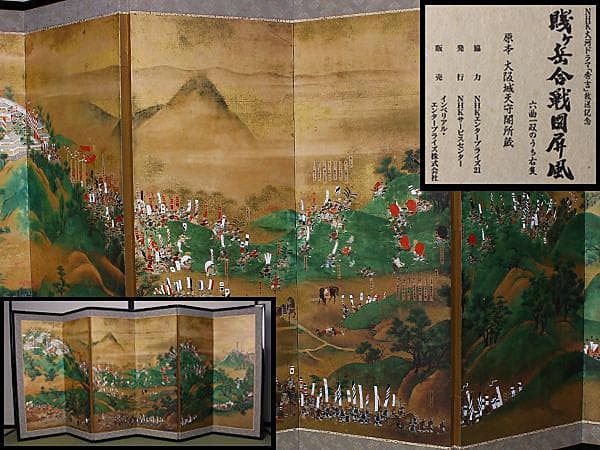 NHK大河ドラマ「秀吉」放送記念
賤ヶ岳合戦図屏風
六曲一双のうち右隻
原本 大阪城天守閣所蔵
協力 NHKエンタープライズ21
発行 NHKサービスセンター
販売 インペリアル・
エンタープライズ株式会社